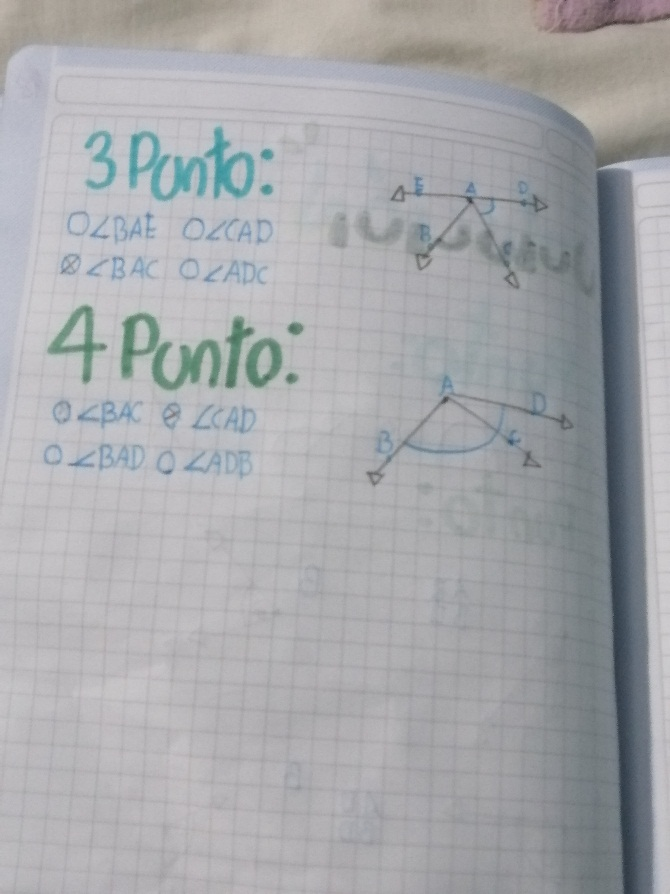 3 Punto:
○∠BAE ○∠CAD
⊗∠BAC ○∠ADC
E A D
B C
4 Punto:
○∠BAC ⊗∠CAD
○∠BAD ○∠ADB
A
D
B C